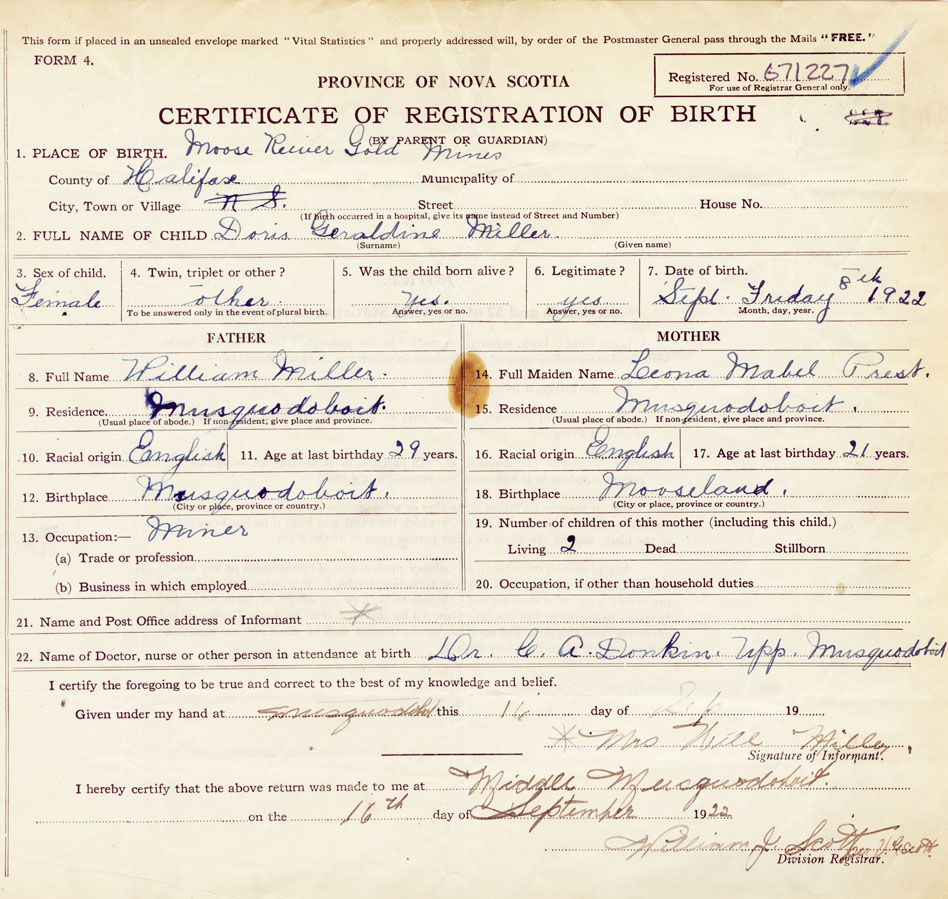 This form if placed in an unsealed envelope marked "Vital Statistics" and properly addressed will, by order of the Postmaster General pass through the Mails "FREE."
FORM 4.
PROVINCE OF NOVA SCOTIA
Registered No. 671227
For use of Registrar General only.
CERTIFICATE OF REGISTRATION OF BIRTH
(BY PARENT OR GUARDIAN)
1. PLACE OF BIRTH. Moose River Gold Mines
County of Halifax Municipality of
City, Town or Village N S. Street House No.
(If birth occurred in a hospital, give its name instead of Street and Number)
2. FULL NAME OF CHILD Doris Geraldine Miller.
(Surname) (Given name)
3. Sex of child. 4. Twin, triplet or other? 5. Was the child born alive? 6. Legitimate? 7. Date of birth.
Female other. yes. yes Sept. Friday 8th 1922
To be answered only in the event of plural birth. Answer, yes or no. Answer, yes or no. Month, day, year.
FATHER MOTHER
8. Full Name William Miller. 14. Full Maiden Name Leona Mabel Prest.
9. Residence Musquodoboit. 15. Residence Musquodoboit.
(Usual place of abode.) If non-resident, give place and province. (Usual place of abode.) If non-resident, give place and province.
10. Racial origin English 11. Age at last birthday 29 years. 16. Racial origin English 17. Age at last birthday 21 years.
12. Birthplace Musquodoboit. 18. Birthplace Mooseland.
(City or place, province or country.) (City or place, province or country.)
13. Occupation:— Miner 19. Number of children of this mother (including this child.)
(a) Trade or profession Living 2 Dead Stillborn
(b) Business in which employed 20. Occupation, if other than household duties
21. Name and Post Office address of Informant
22. Name of Doctor, nurse or other person in attendance at birth Dr. C. A. Donkin. Upp. Musquodoboit
I certify the foregoing to be true and correct to the best of my knowledge and belief.
Given under my hand at this 16 day of Sep 19
Mrs Will Miller
Signature of Informant.
I hereby certify that the above return was made to me at Middle Musquodoboit.
on the 16th day of September 1922
William J. Scott
Division Registrar.